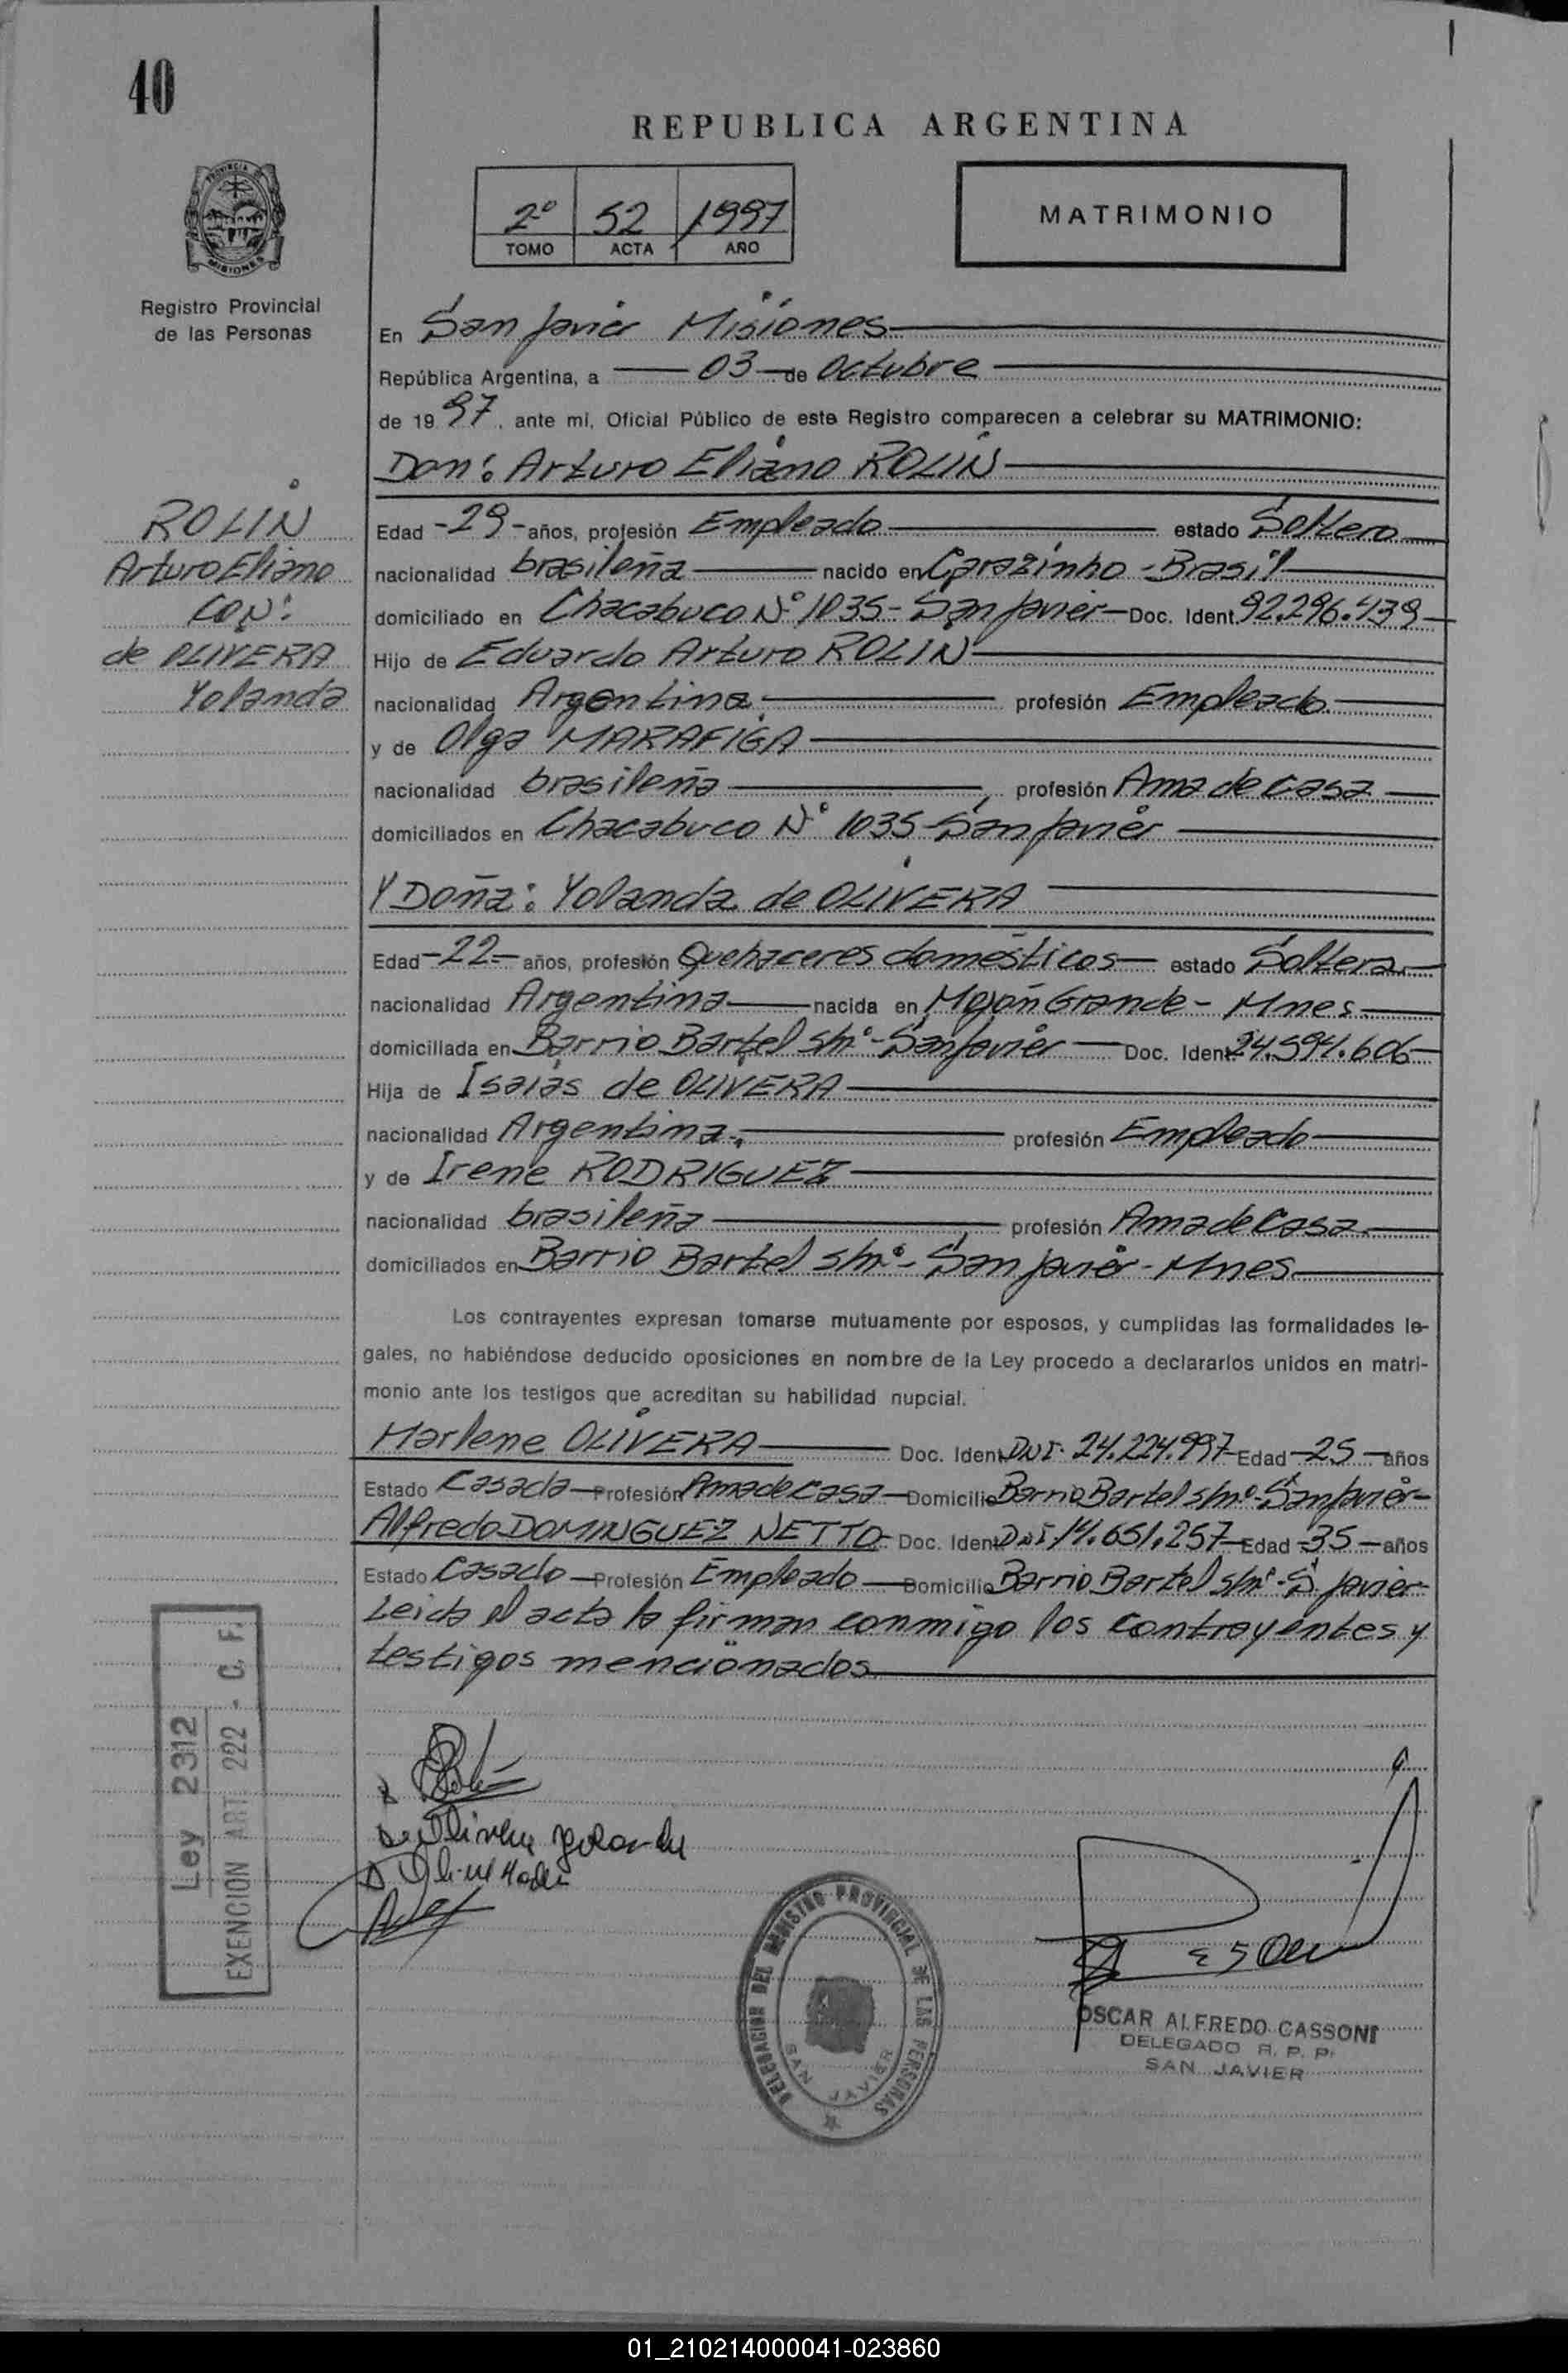 40
REPUBLICA ARGENTINA
PROVINCIA DE
MISIONES
Registro Provincial
de las Personas
2º 52 1997
TOMO ACTA AÑO
MATRIMONIO
En San Javier Misiones
República Argentina, a 03 de Octubre
de 1997, ante mi, Oficial Público de este Registro comparecen a celebrar su MATRIMONIO:
Don: Arturo Eliano ROLIN
ROLIN
Arturo Eliano
CON:
de OLIVERA
Yolanda
Edad -29- años, profesión Empleado estado Soltero
nacionalidad brasileña nacido en Carazinho - Brasil
domiciliado en Chacabuco Nº 1035 - San Javier Doc. Ident. 92.296.439
Hijo de Eduardo Arturo ROLIN
nacionalidad Argentina profesión Empleado
y de Olga MARAFIGA
nacionalidad brasileña profesión Ama de casa
domiciliados en Chacabuco Nº 1035 - San Javier
Y Doña: Yolanda de OLIVERA
Edad -22- años, profesión Quehaceres domésticos estado Soltera
nacionalidad Argentina nacida en Mojón Grande - Mnes.
domiciliada en Barrio Bartel s/nº - San Javier Doc. Ident. 24.594.606
Hija de Isaias de OLIVERA
nacionalidad Argentina profesión Empleado
y de Irene RODRIGUEZ
nacionalidad brasileña profesión Ama de Casa
domiciliados en Barrio Bartel s/nº - San Javier - Mnes.
Los contrayentes expresan tomarse mutuamente por esposos, y cumplidas las formalidades le-
gales, no habiéndose deducido oposiciones en nombre de la Ley procedo a declararlos unidos en matri-
monio ante los testigos que acreditan su habilidad nupcial.
Marlene OLIVERA Doc. Ident. DNI. 24.224.997 Edad -25- años
Estado Casada Profesión Ama de Casa Domicilio Barrio Bartel s/nº - San Javier -
Alfredo DOMINGUEZ NETTO Doc. Ident. DNI 14.651.257 Edad -35- años
Estado Casado Profesión Empleado Domicilio Barrio Bartel s/nº - S. Javier
Leida el acta la firman conmigo los contrayentes y
testigos mencionados
Ley 2312
EXENCION ART. 222 - C. F.
De Olivera Yolanda
DELEGACION DEL REGISTRO PROVINCIAL DE LAS PERSONAS
SAN JAVIER
OSCAR ALFREDO CASSONI
DELEGADO R. P. P.
SAN JAVIER
01_210214000041-023860